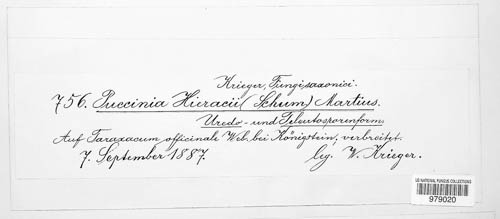 Krieger, Fungi saxonici.
756. Puccinia Hieracii (Schum) Martius.
Uredo- und Teleutosporenform.
Auf Taraxacum officinale Web. bei Königstein, verbreitet.
7. September 1887. leg. W. Krieger.
US NATIONAL FUNGUS COLLECTIONS
979020